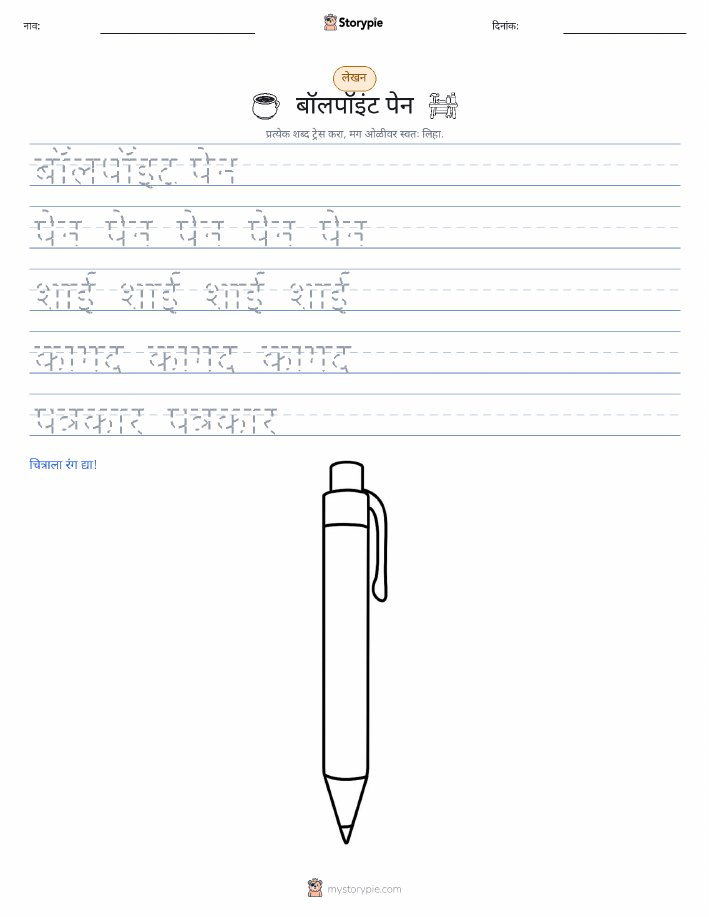 नाव:
Storypie
दिनांक:
लेखन
बॉलपॉइंट पेन
प्रत्येक शब्द ट्रेस करा, मग ओळीवर स्वतः लिहा.
बॉलपॉइंट पेन
पेन पेन पेन पेन पेन
शाई शाई शाई शाई
कागद कागद कागद
पत्रकार पत्रकार
चित्राला रंग द्या!
mystorypie.com